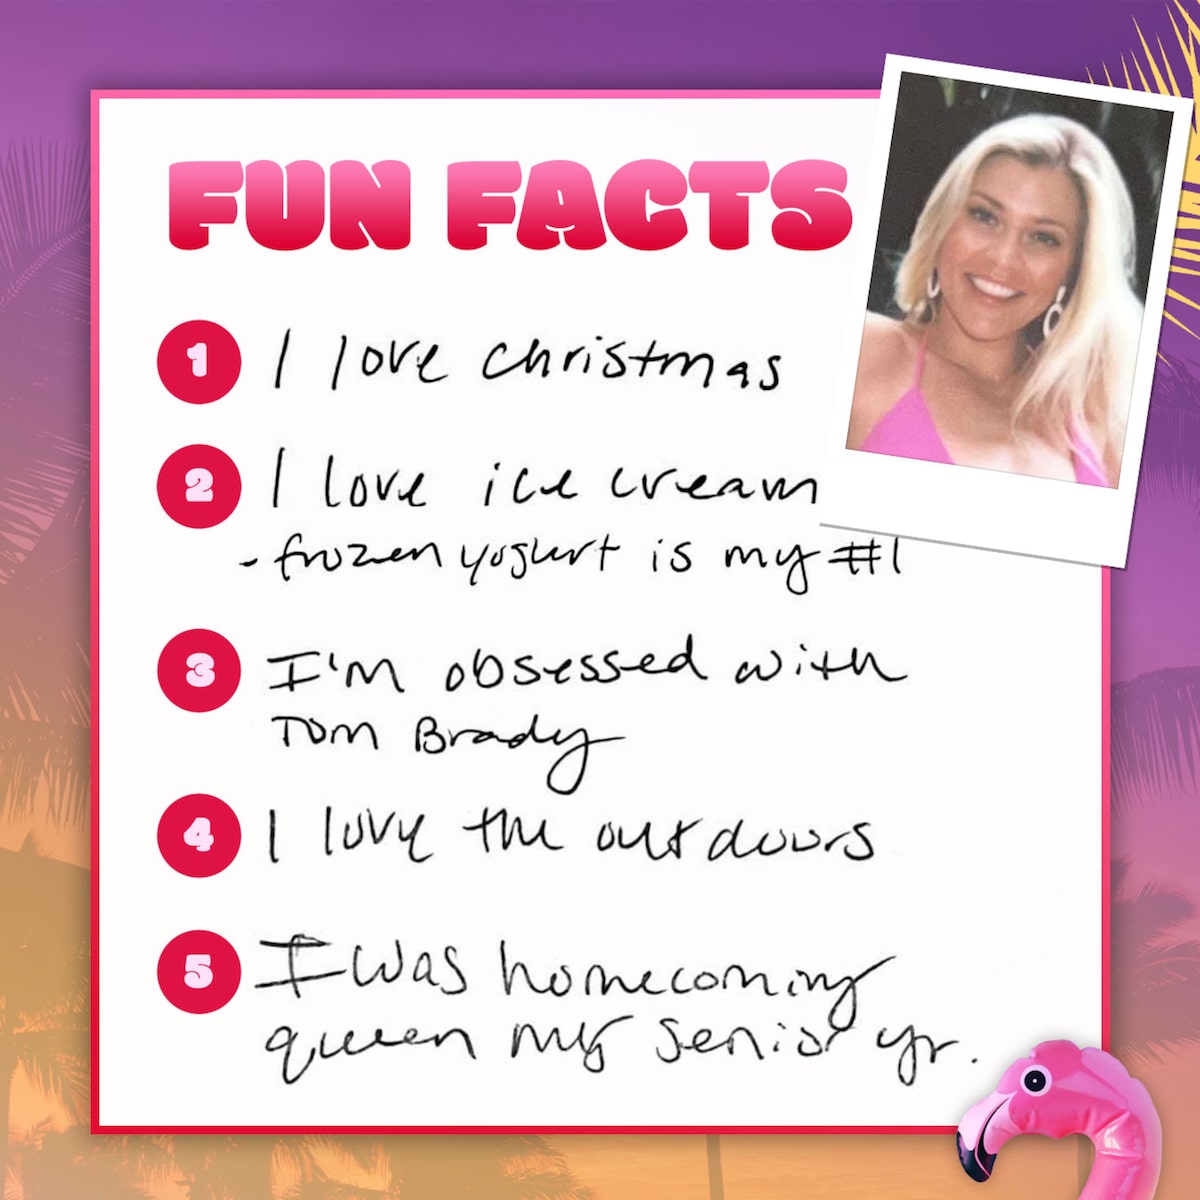 FUN FACTS
1 I love christmas
2 I love ice cream
- frozen yogurt is my #1
3 I'm obsessed with
Tom Brady
4 I love the outdoors
5 I was homecoming
queen my senior yr.